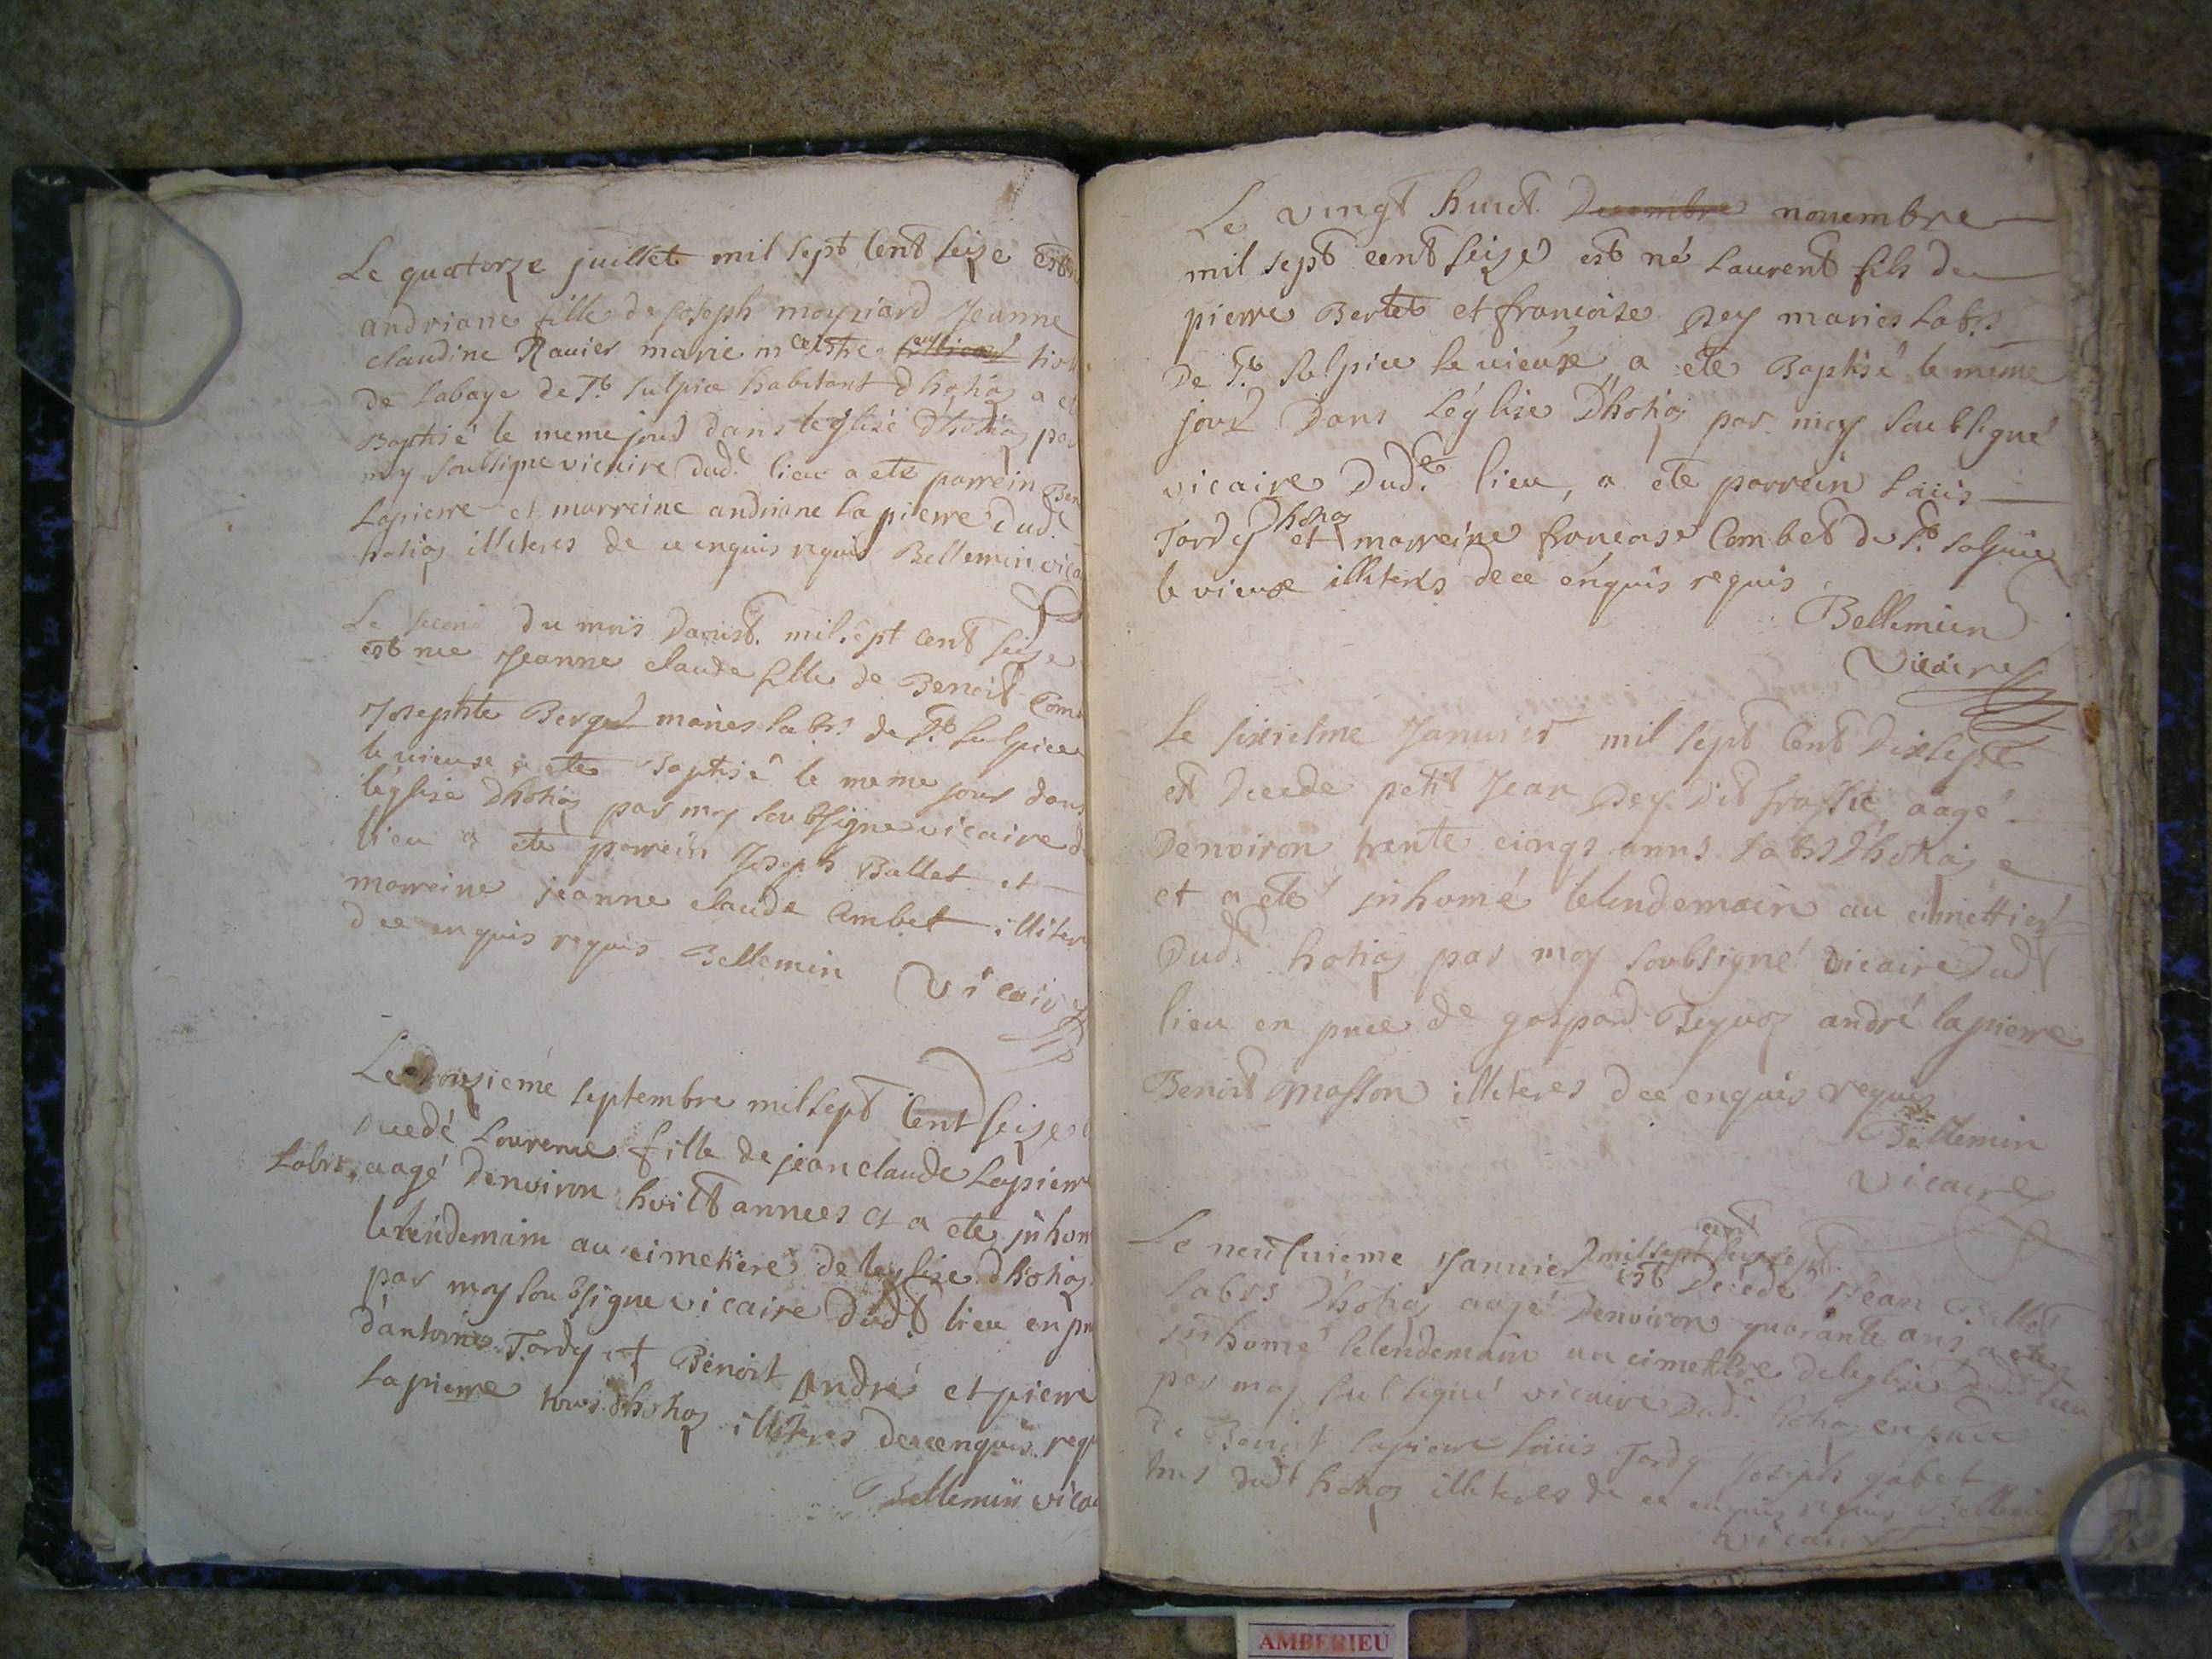 Le quatorze juillet mil sept Cent seize est
andriane fille de Joseph moyniard Jeanne
claudine Ravier marie
de Labaye de St. Sulpice habitant dhotiaz a et
Baptisé le meme jour dans leglise d'hotiaz par
moy soubsigne vicaire dud. lieu a ete parrein Ben
Lapierre et marreine andriane la pierre dud.
hotiaz illiteres de ce enquis requis Bellemin vica
Le second du mois Daoust. mil sept cent seize
est nee Jeanne claude fille de Benoist Com
Josephte Berget mariés labrs de St. Sulpice
le vieuxe a ete Baptisé le meme jour dans
l'église Dhotiaz par moy soubsigne vicaire d
lieu a ete parrein Joseph Ballet et
marreine jeanne claude Combet illiter
dce enquis requis Bellemin
vicaire
Le onzieme septembre mil sept Cent seize e
decedé Laurence fille de jean claude Lapierre
Labrs, aagé denviron huict annees et a ete inhom
le lendemain au cimetiere de leglise dhotiaz
par moy soubsigne vicaire dudt lieu en pn
d'antoine Tardy et Benoist André et pierre
Lapierre tous dhotiaz illiteres de ce enquis requ
Bellemin vica
Le vingt huict Decembre novembre
mil sept cent seize est né Laurent fils de
pierre Bertet et francoise Dey mariés labrs
De St. Sulpice le vieuxe a ete Baptisé le meme
jour Dans L'église D'hotiaz par moy soubsigné
vicaire Dud. lieu, a ete parrein Louis
Tardy Dhotiaz et marreine francoise Combet de St. Sulpice
le vieuxe illiterés de ce enquis requis
Bellemin
Vicaire
Le sixiesme Januier mil sept Cent Dixsept
est Decede petit Jean Dey Dit aagé
Denviron trente cinqs anns Labrs D'hotiaz
et a eté inhomé lelendemain au cimettier
Dudt hotiaz par moy soubsigné vicaire Dudt
lieu en pnce de gaspard Beyvoz andré lapierre
Benoist Masson illiteres dce enquis requis
Bellemin
vicaire
Le neufuieme Januier mil sept cent est Decedé Jean Ballet
Labrs D'hotiaz aagé Denviron quarante ans a ete
inhomé lelendemain au cimettiere deleglise dudt lieu
par moy subsigné vicaire Dud. hotiaz en pnce
de Benoist lapierre Louis Tardy Joseph gobet
tous dudt hotiaz illiteres de ce enquis requis Bellemi
vicaire
AMBERIEU